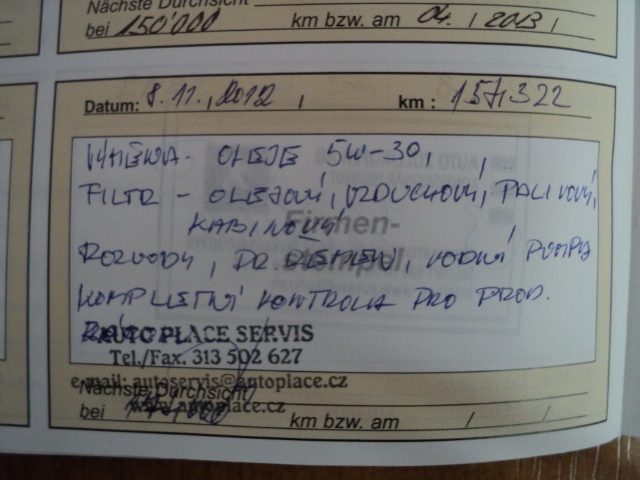 Nächste Durchsicht
bei 150'000 km bzw. am 04. / 2013 /
Datum: 8.11., 2012 / km : 157 322
VÝMĚNA - OLEJE 5W-30,
FILTR - OLEJOVÝ, VZDUCHOVÝ, PALIVOVÝ,
KABINOVÝ
Firmen-
ROZVODY, DR. ŘEMEN, VODNÍ PUMPA
stempel
KOMPLETNÍ KONTROLA PRO PROD.
AUTO PLACE SERVIS
Tel./Fax. 313 502 627
e-mail: autoservis@autoplace.cz
Nächste Durchsicht
autoplace.cz
bei km bzw. am / /